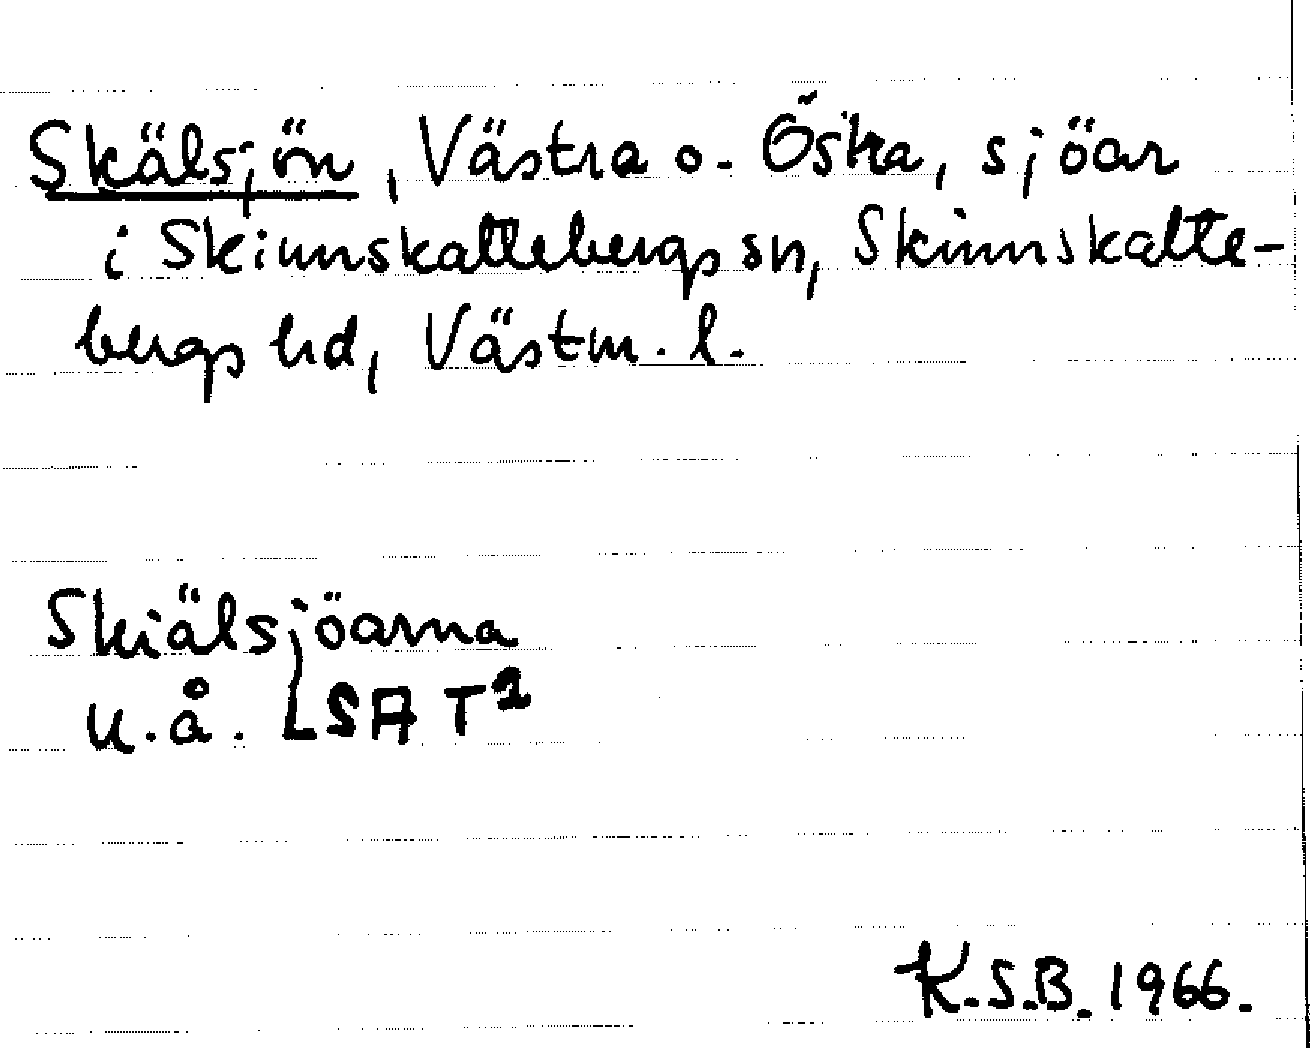 Skälsjön, Västra o. Östra, sjöar
i Skinnskattebergs sn, Skinnskatte-
bergs hd, Västm. l.
Skiälsjöarna
u.å. LSA T²
K.S.B. 1966.